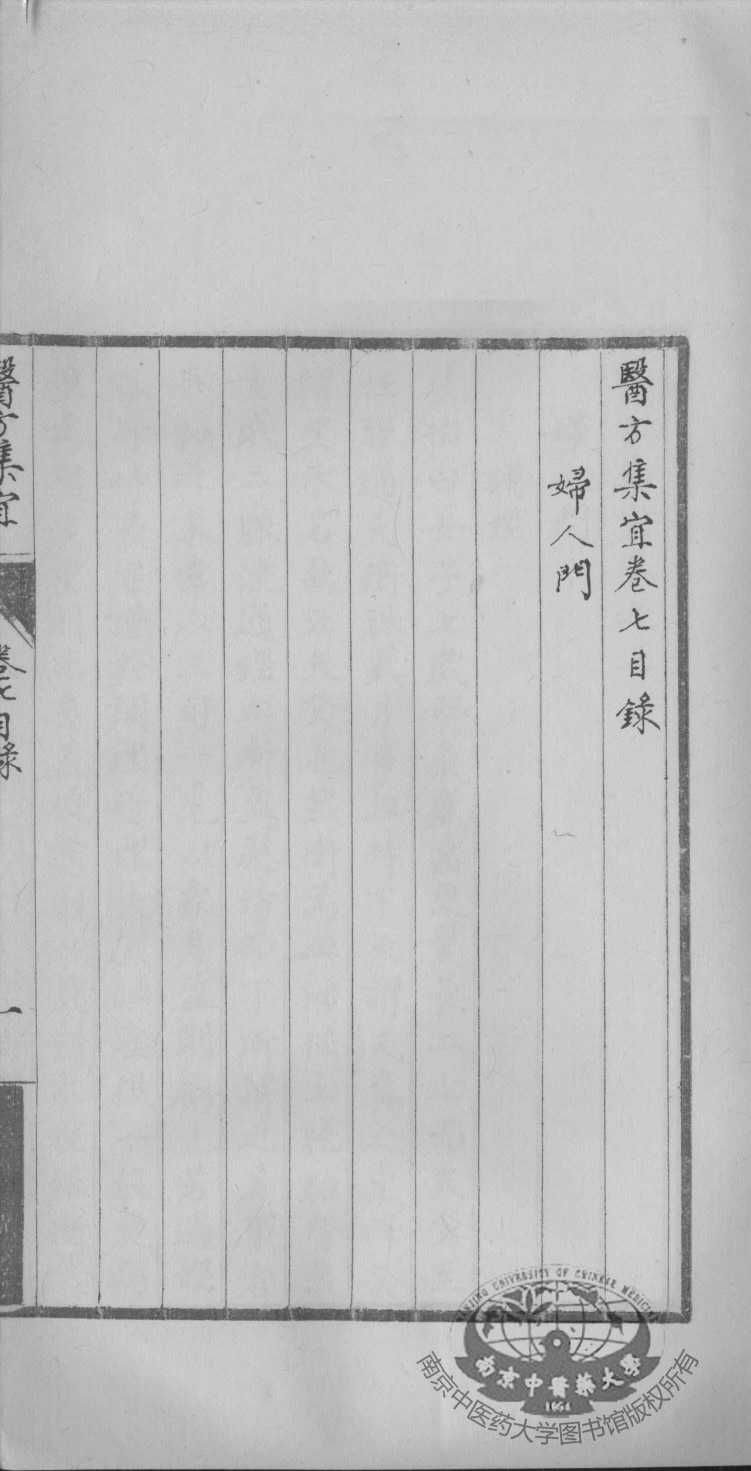 醫方集宜卷七目錄
婦人門
醫方集宜
卷七目錄
一
NANJING UNIVERSITY OF CHINESE MEDICINE
南京中醫藥大學
1954
南京中医药大学图书馆版权所有